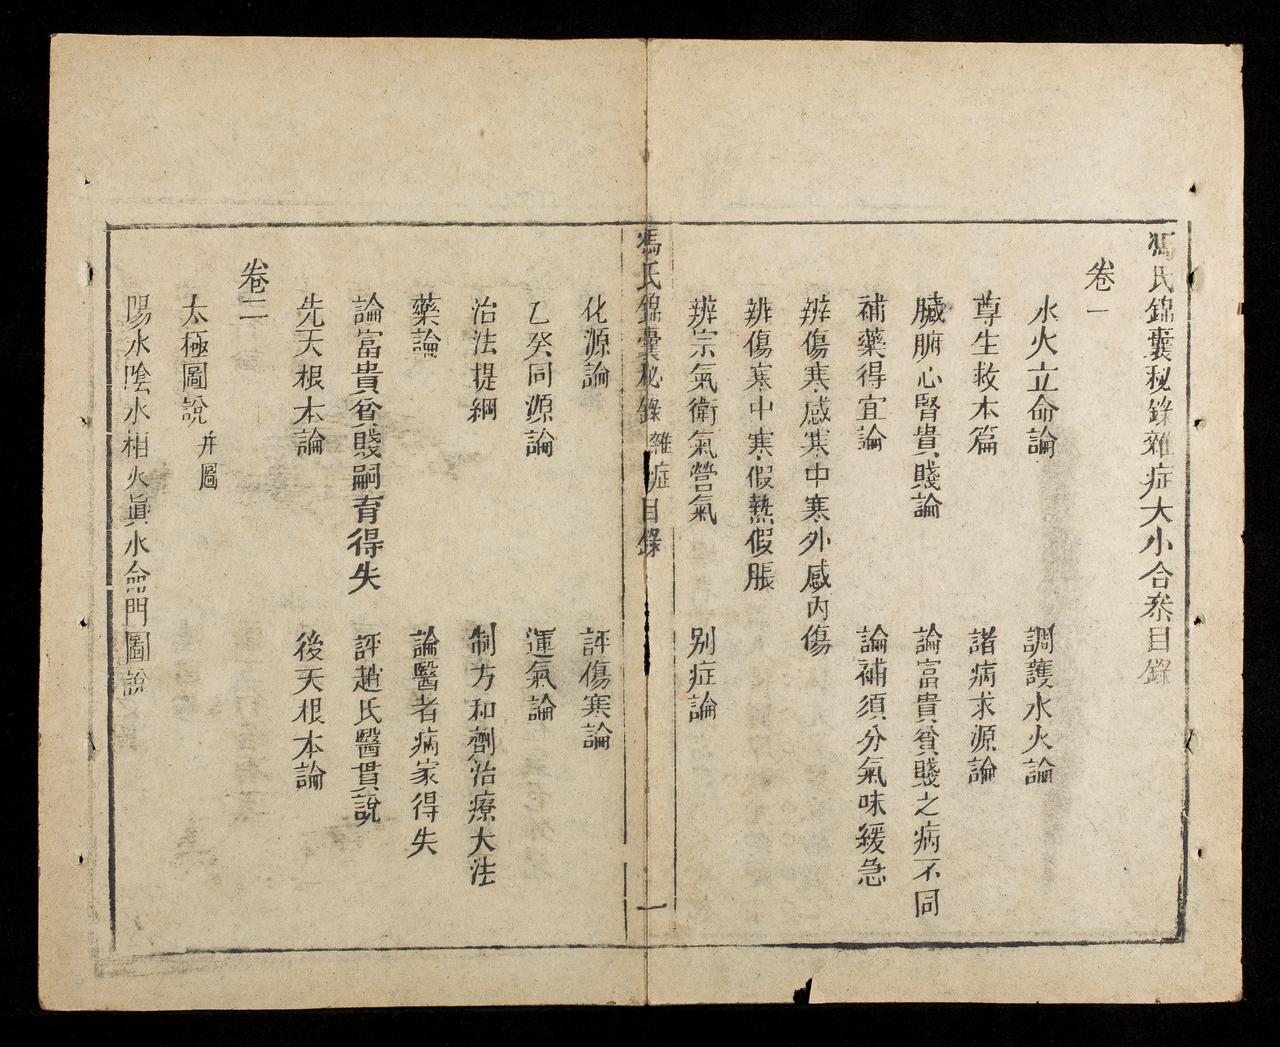 馮氏錦囊秘錄雜症大小合叅目錄
卷一
水火立命論 調護水火論
尊生救本篇 諸病求源論
臟腑心腎貴賤論 論富貴貧賤之病不同
補藥得宜論 論補須分氣味緩急
辨傷寒感寒中寒外感內傷
辨傷寒中寒假熱假脹
辨宗氣衛氣營氣 別症論
馮氏錦囊秘錄 雜症 目錄 一
化源論 評傷寒論
乙癸同源論 運氣論
治法提綱 制方和劑治療大法
藥論 論醫者病家得失
論富貴貧賤嗣育得失 評趙氏醫貫說
先天根本論 後天根本論
卷二
太極圖說 并圖
陽水陰水相火眞水命門圖說